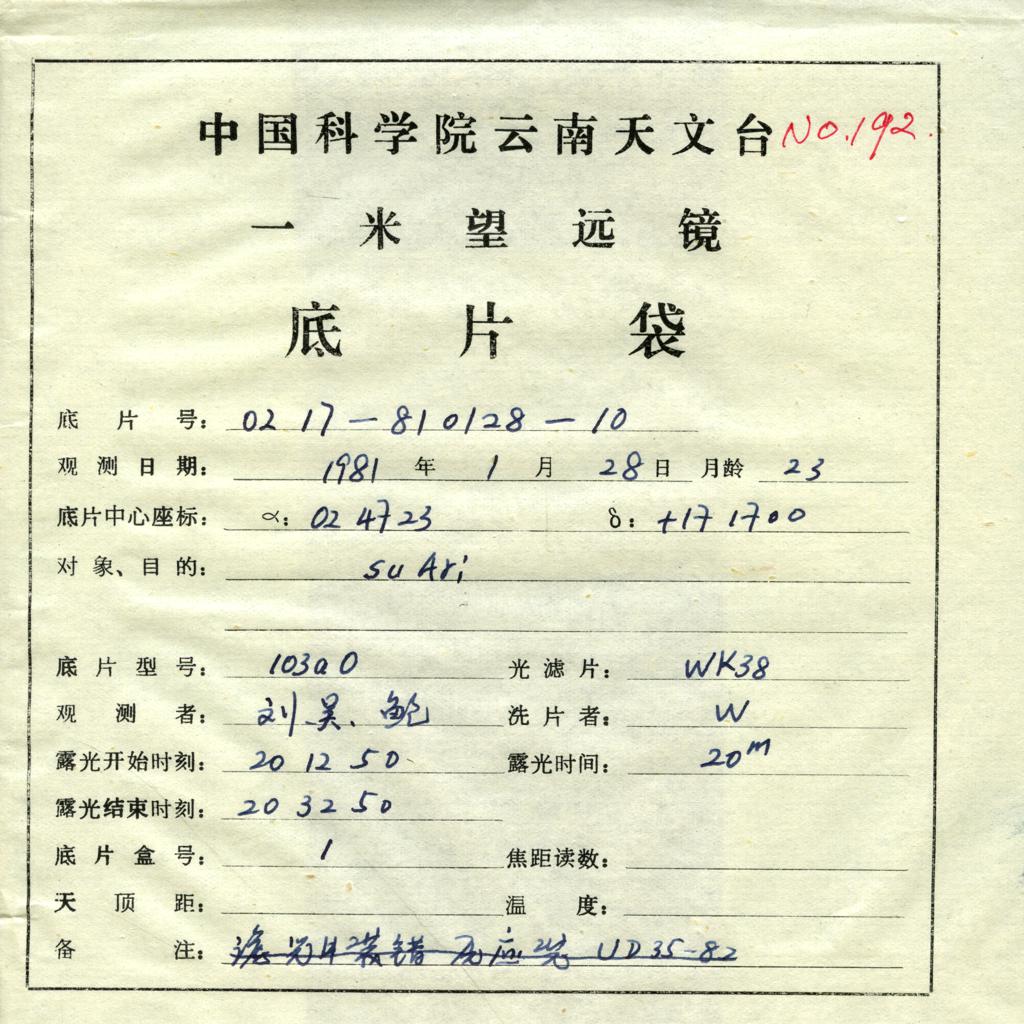 中国科学院云南天文台 NO.192.
一米望远镜
底片袋
底片号: 02 17-810128-10
观测日期: 1981年1月28日 月龄 23
底片中心座标: α: 02 47 23 δ: +17 17 00
对象、目的: SU Ari
底片型号: 103a0 光滤片: WK38
观测者: 刘 吴、鲍 洗片者: W
露光开始时刻: 20 12 50 露光时间: 20m
露光结束时刻: 20 32 50
底片盒号: 1 焦距读数:
天顶距: 温度:
备注: 装错 应 UD35-82